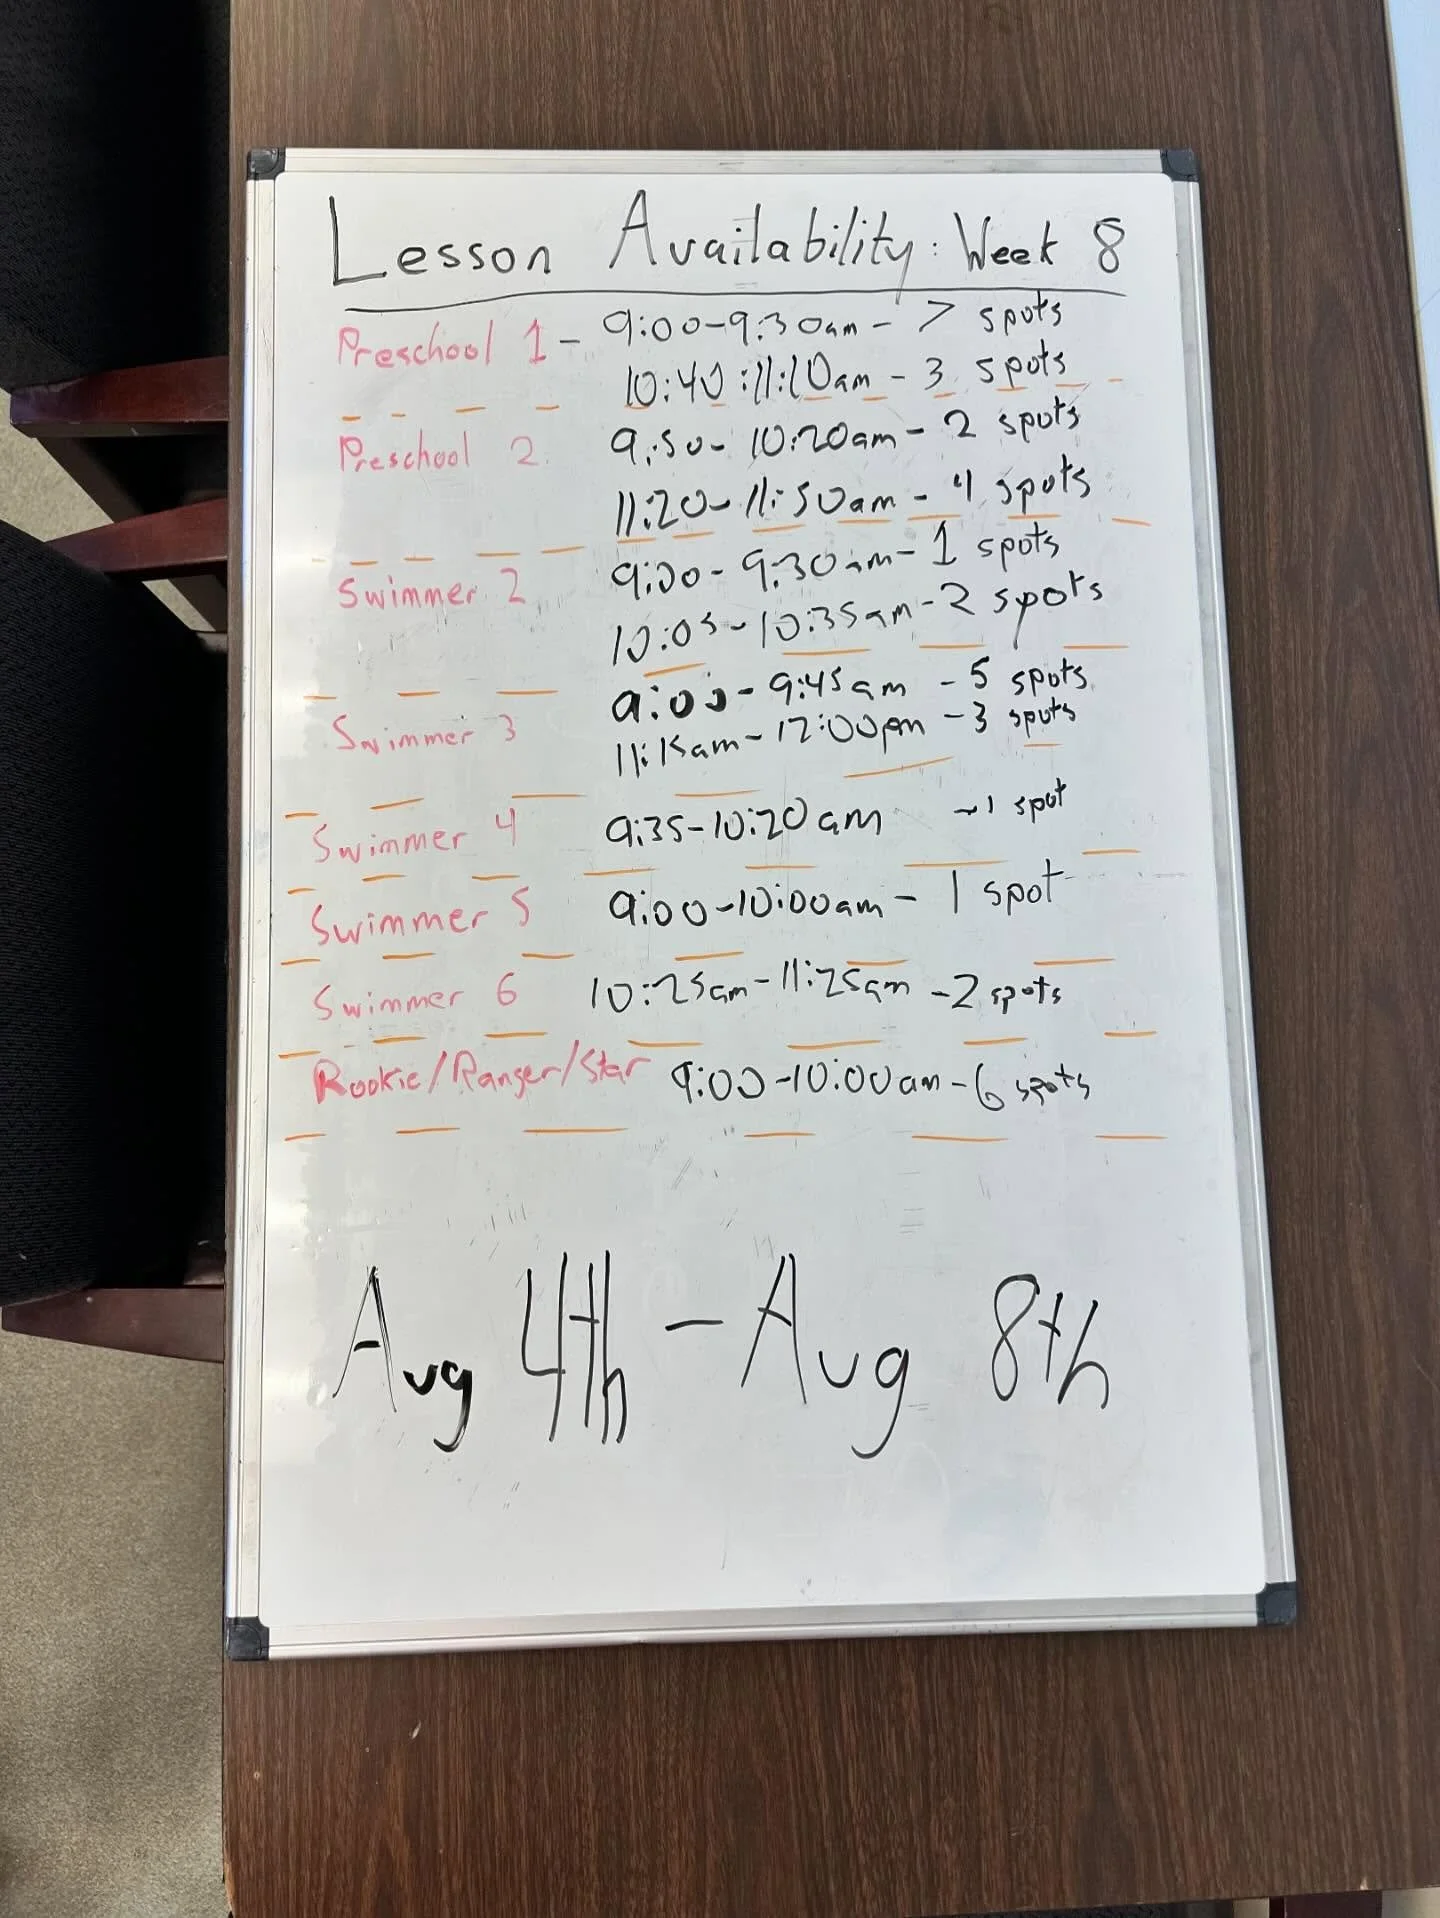 Lesson Availability: Week 8
Preschool 1 - 9:00-9:30am - 7 spots
10:40:11:10am - 3 spots
Preschool 2 9:50- 10:20am - 2 spots
11:20- 11:50am - 4 spots
Swimmer 2 9:00 - 9:30am - 1 spots
10:05 - 10:35am - 2 spots
Swimmer 3 9:00 - 9:45am - 5 spots
11:15am - 12:00pm - 3 spots
Swimmer 4 9:35-10:20am - 1 spot
Swimmer 5 9:00-10:00am - 1 spot
Swimmer 6 10:25am-11:25am - 2 spots
Rookie/Ranger/Star 9:00-10:00am - 6 spots
Aug 4th - Aug 8th